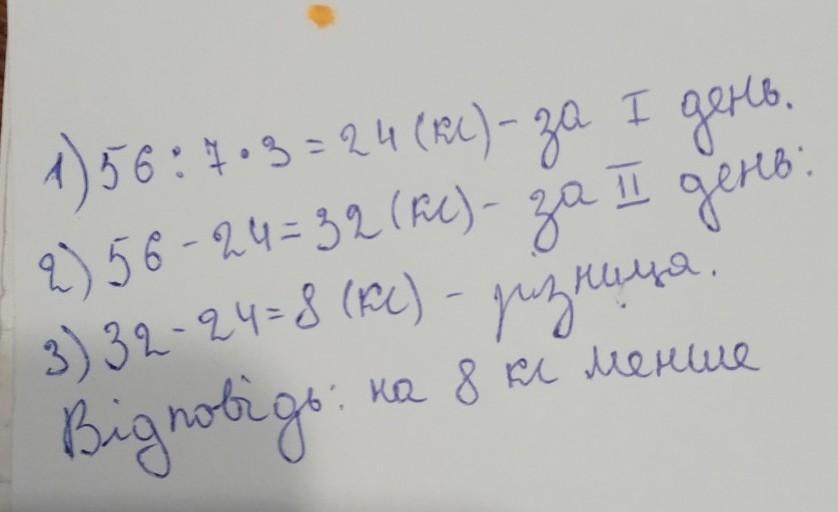 1) 56 : 7 · 3 = 24 (кг) - за I день.
2) 56 - 24 = 32 (кг) - за II день:
3) 32 - 24 = 8 (кг) - різниця.
Відповідь: на 8 кг менше